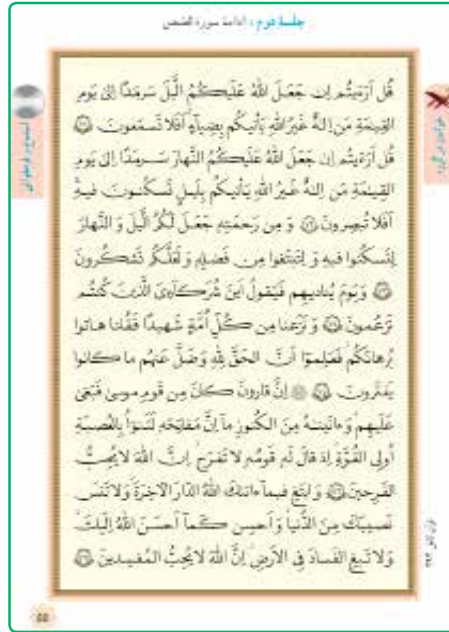 جلسهٔ دوم : ادامهٔ سورهٔ القصص
قُل اَرَءَيتُم اِن جَعَلَ اللّٰهُ عَلَيكُمُ الَّيلَ سَرمَدًا اِلىٰ يَومِ
القِيٰمَةِ مَن اِلٰهٌ غَيرُ اللّٰهِ يَأتيكُم بِضِيآءٍ اَفَلا تَسمَعونَ
قُل اَرَءَيتُم اِن جَعَلَ اللّٰهُ عَلَيكُمُ النَّهارَ سَرمَدًا اِلىٰ يَومِ
القِيٰمَةِ مَن اِلٰهٌ غَيرُ اللّٰهِ يَأتيكُم بِلَيلٍ تَسكُنونَ فيهِ
اَفَلا تُبصِرونَ وَ مِن رَحمَتِه جَعَلَ لَكُمُ الَّيلَ وَ النَّهارَ
لِتَسكُنوا فيهِ وَ لِتَبتَغوا مِن فَضلِه وَ لَعَلَّكُم تَشكُرونَ
وَ يَومَ يُناديهِم فَيَقولُ اَينَ شُرَكآءِىَ الَّذينَ كُنتُم
تَزعُمونَ وَ نَزَعنا مِن كُلِّ اُمَّةٍ شَهيدًا فَقُلنا هاتوا
بُرهانَكُم فَعَلِموا اَنَّ الحَقَّ لِلّٰهِ وَ ضَلَّ عَنهُم ما كانوا
يَفتَرونَ اِنَّ قارونَ كانَ مِن قَومِ موسىٰ فَبَغىٰ
عَلَيهِم وَ ءاتَينٰهُ مِنَ الكُنوزِ مآ اِنَّ مَفاتِحَه لَتَنوأُ بِالعُصبَةِ
اُولِى القُوَّةِ اِذ قالَ لَه قَومُه لا تَفرَح اِنَّ اللّٰهَ لا يُحِبُّ
الفَرِحينَ وَ ابتَغِ فيمآ ءاتىٰكَ اللّٰهُ الدّارَ الآخِرَةَ وَ لا تَنسَ
نَصيبَكَ مِنَ الدُّنيا وَ اَحسِن كَمآ اَحسَنَ اللّٰهُ اِلَيكَ
وَ لا تَبغِ الفَسادَ فِى الاَرضِ اِنَّ اللّٰهَ لا يُحِبُّ المُفسِدينَ